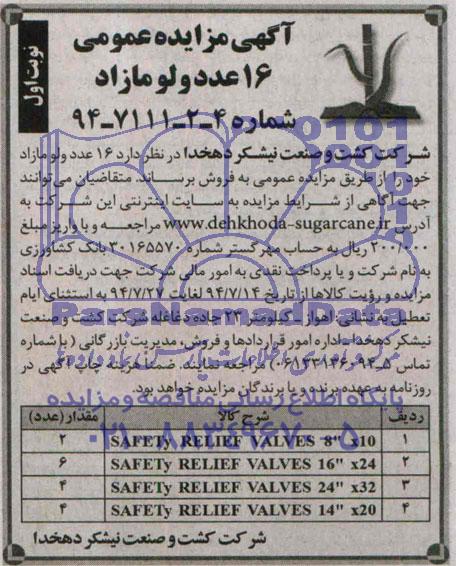 نوبت اول
آگهی مزایده عمومی
۱۶ عدد ولو مازاد
شماره ۴-۲-۷۱۱۱-۹۴
شرکت کشت و صنعت نیشکر دهخدا در نظر دارد ۱۶ عدد ولو مازاد
خود را از طریق مزایده عمومی به فروش برساند. متقاضیان می‌توانند
جهت آگاهی از شرایط مزایده به سایت اینترنتی این شرکت به
آدرس www.dehkhoda-sugarcane.ir مراجعه و با واریز مبلغ
۲۰۰/۰۰۰ ریال به حساب مهر گستر شماره ۳۰۱۶۵۵۷۰ بانک کشاورزی
به نام شرکت و یا پرداخت نقدی به امور مالی شرکت جهت دریافت اسناد
مزایده و رؤیت کالاها از تاریخ ۹۴/۷/۱۴ لغایت ۹۴/۷/۲۲ به استثنای ایام
تعطیل به نشانی: اهواز - کیلومتر ۲۳ جاده دغاغله شرکت کشت و صنعت
نیشکر دهخدا - اداره امور قراردادها و فروش، مدیریت بازرگانی (با شماره
تماس ۵ـ۹۴ مراجعه نمایند. ضمناً هزینه چاپ آگهی در
روزنامه به عهده برنده و یا برندگان مزایده خواهد بود.
ردیف شرح کالا مقدار (عدد)
۱ SAFETy RELIEF VALVES 8" x10 ۲
۲ SAFETy RELIEF VALVES 16" x24 ۶
۳ SAFETy RELIEF VALVES 24" x32 ۴
۴ SAFETy RELIEF VALVES 14" x20 ۴
شرکت کشت و صنعت نیشکر دهخدا
ParsNamadData
پایگاه اطلاع رسانی مناقصه و مزایده
۰۲۱-۸۸۳۴۹۶۷۰-۵